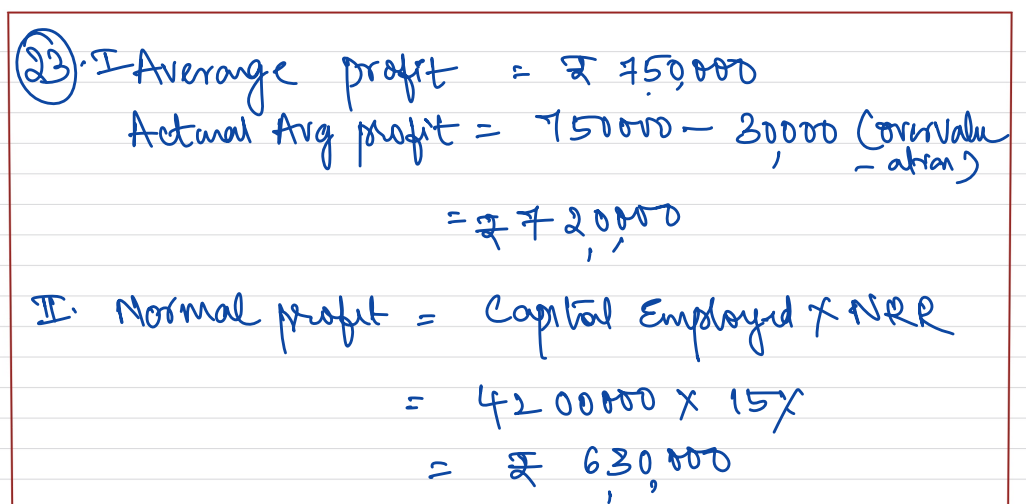 23. I Average profit = ₹ 750,000
Actual Avg profit = 750000 - 30,000 (overvalu
- ation)
= ₹ 720,000
II. Normal profit = Capital Employed x NRR
= 4200000 x 15%
= ₹ 630,000